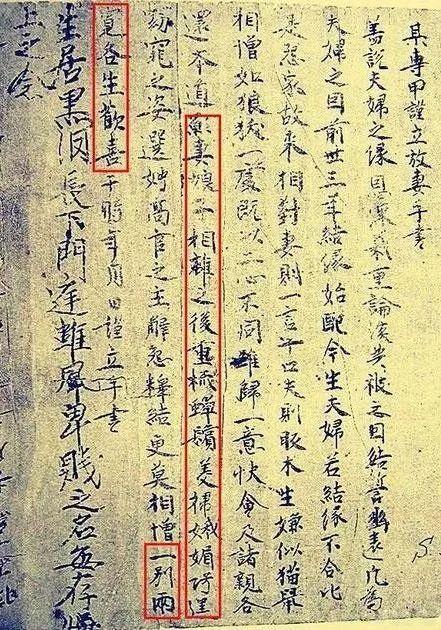 某專甲謹立放妻手書
蓋說夫婦之緣恩深義重論談共被之因結誓幽遠凡為
夫婦之因前世三年結緣始配今生夫婦若結緣不合比
是怨家故來相對妻則一言十口夫則販木生嫌似猫鼠
相憎如狼犾一處既以二心不同難歸一意快會及諸親各
還本道願妻娘子相離之後重梳蟬鬢美掃娥媚巧逞
窈窕之姿選娉高官之主解怨釋結更莫相憎一別兩
寬各生歡喜于時年月日謹立手書
生居黑淚長下門庭雖風卑賤之名無存
上之念